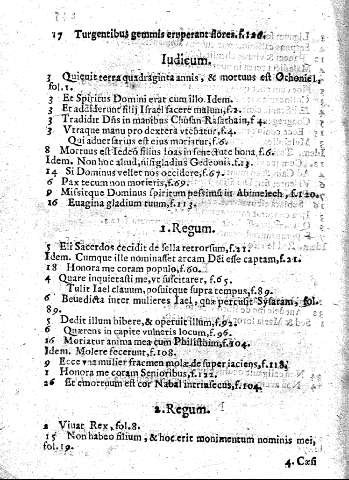 17 Turgentibus gemmis eruperant flores.f.126.
Iudicum.
3 Quieuit terra quadraginta annis, & mortuus est Othoniel,
fol.1.
3 Et Spiritus Domini erat cum illo. Idem.
3 Et addiderunt filij Israel facere malum, f.2.
3 Tradidit Dñs in manibus Chusan Rasathain, f 4.
3 Vtraque manu pro dextera vtebatur, f.4.
Qui aduersarius est eius moriatur, f.6.
8 Mortuus est Iedeõ filius Ioas in senectute bona, f.6.
Idem. Non hoc aliud, nisi gladius Gedeonis. f.13.
14 Si Dominus vellet nos occidere, f.67.
6 Pax tecum non morieris, f.69.
9 Missitque Dominus spiritum pessimũ in Abimelech, f.120.
16 Euagina gladium tuum, f.113.
1.Regum.
5 Eli Sacerdos cecidit de sella retrorsum, f.21.
Idem. Cumque ille nominasset arcam Dẽi esse captam, f.21.
18 Honora me coram populo, f.60.
4 Quare inquietasti me, vt suscitarer, f.65.
Tulit Iael clauum, posuitque supra tempus, f.89.
6 Benedicta inter mulieres Iael, quæ percusit Sysaram, fol.
89.
5 Dedit illum bibere, & operuit illum, f.92.
6 Quærens in capite vulneris locum, f.96.
16 Moriatur anima mea cum Philisthim, f.104.
Idem. Molere fecerunt, f.108.
9 Ecce vna mulier fracmen molæ de super iaciens, f.118.
1 Honora me coram Senioribus, f.122.
26 Et emortuum est cor Nabal intrinsecus, f.104.
2.Regum.
2 Viuat Rex, fol.8.
15 Non habeo filium, & hoc erit monimentum nominis mei,
fol.19.
4. Cxsi